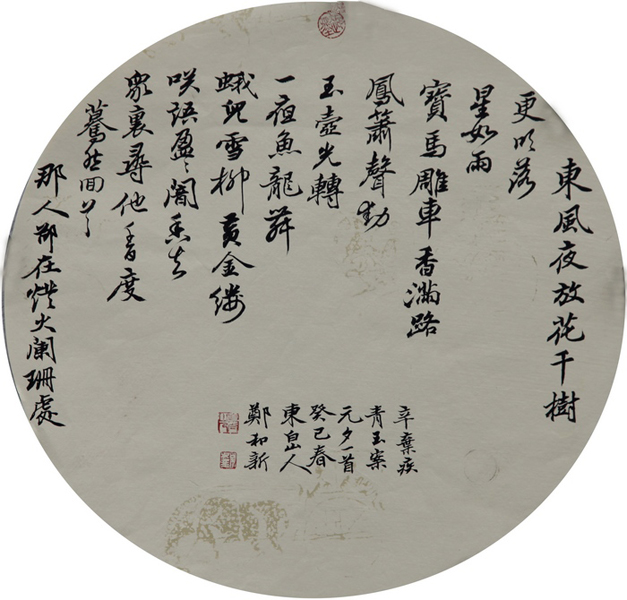 東風夜放花千樹
更吹落
星如雨
寶馬雕車香滿路
鳳簫聲動
玉壺光轉
一夜魚龍舞
蛾兒雪柳黃金縷
咲語盈〻闇香去
眾裏尋他千百度
驀然回首
那人卻在燈火闌珊處
辛棄疾
青玉案
元夕一首
癸巳春
東白山人
鄭和新